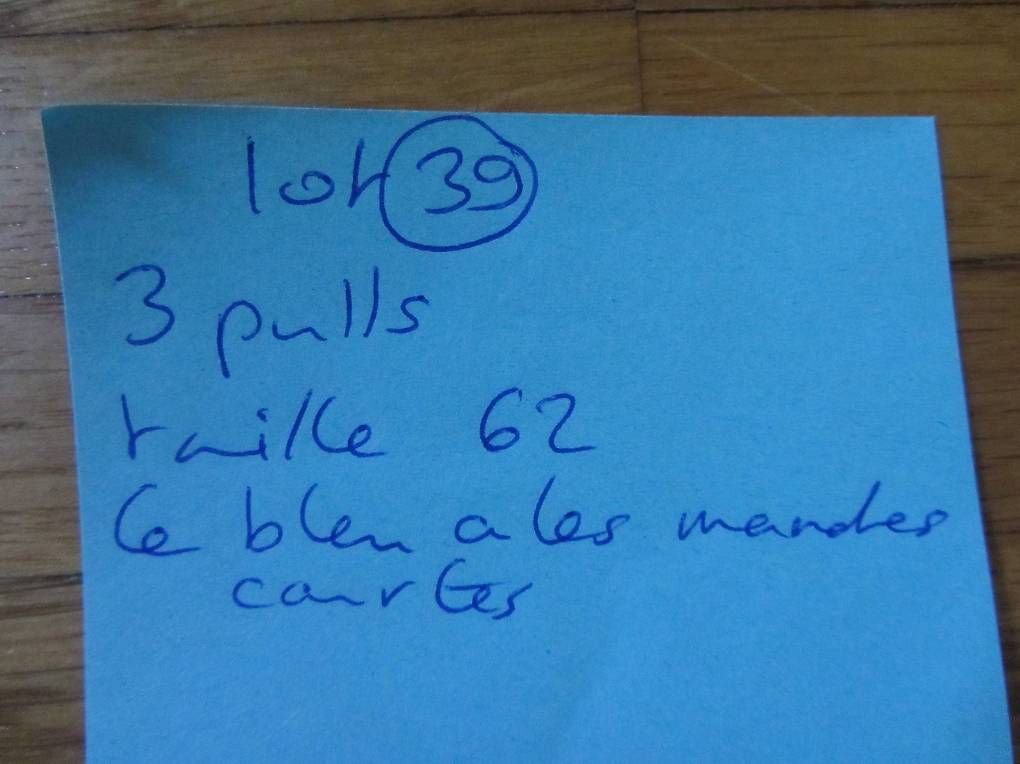 lot 39
3 pulls
taille 62
le bleu a les manches
courtes